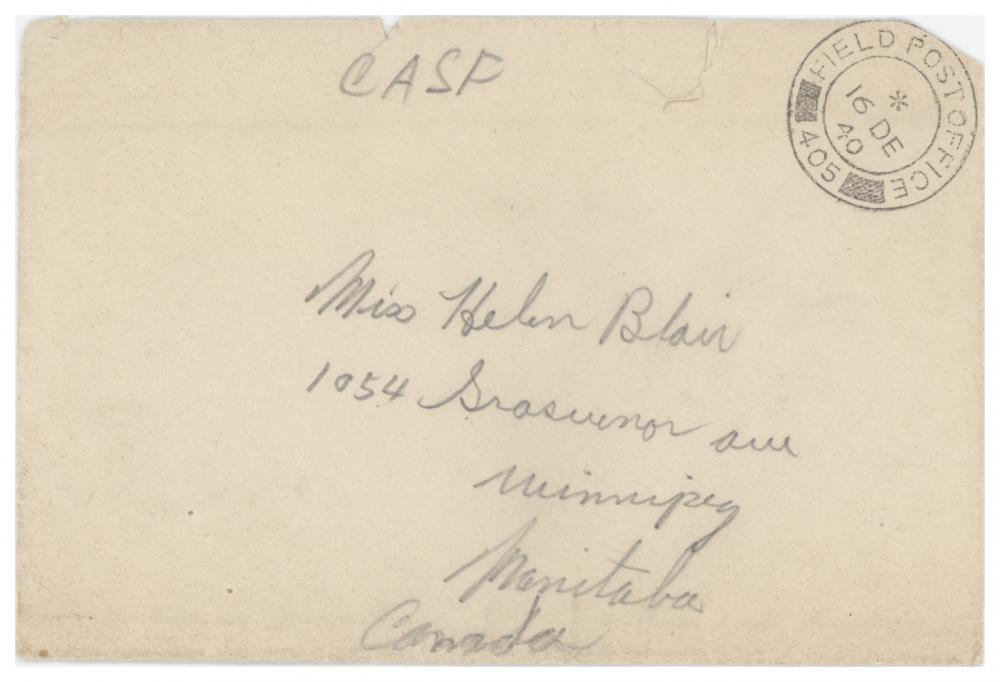 CASF
FIELD POST OFFICE
405
*
16 DE
40
Miss Helen Blair
1054 Grosvenor ave
Winnipeg
Manitoba
Canada